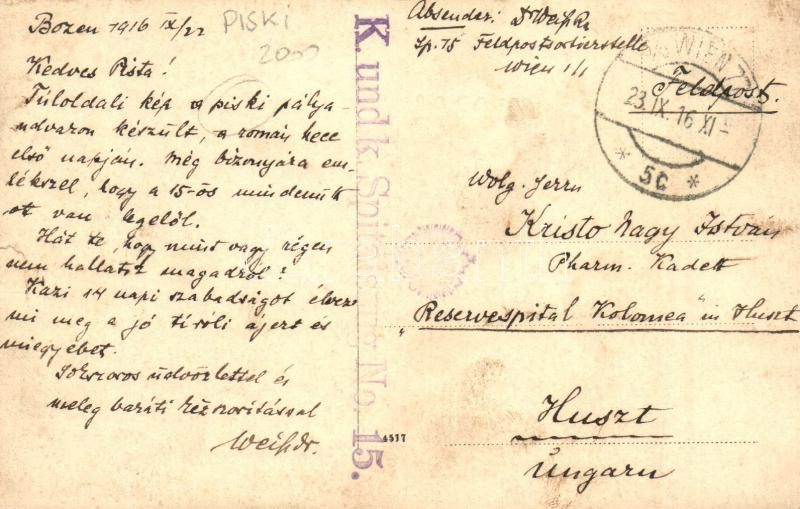 Bozen 1916 IX/22
PISKI
2000
Kedves Pista!
Túloldali kép a piski pálya-
udvaron készült, a román hece
első napján. Még bizonyára em-
lékszel, hogy a 15-ös mindenütt
ott van legelöl.
Hát te, hogy mint vagy régen
nem hallatsz magadról?
14 napi szabadságot élvez
mi meg a jó tiroli ájert és
miegyebet.
Sokszoros üdvözlettel és
meleg baráti kézszorítással
Weiß dr.
K. und k. No. 15.
4517
Absender: Dr Weiß
Sp. 15 Feldpostsortierstelle
Wien 1/1
Feldpost.
WIEN
23.IX.16 XI
* 5c *
Wolg. Herrn
Kristo Nagy István
Pharm. Kadett
"Reservespital Kolomea" in Huszt
Huszt
Ungarn